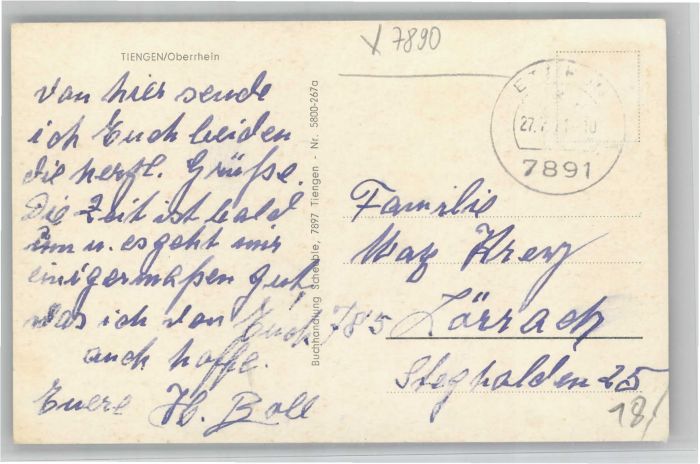 X 7890
TIENGEN/Oberrhein
von hier sende
ich Euch beiden
die herzl. Grüße.
Die Zeit ist bald
um u. es geht mir
einigermaßen gut,
was ich von Euch
auch hoffe.
Euere H. Boll
Buchhandlung Scheuble, 7897 Tiengen - Nr. 5800-267a
27.7.71-10
7891
Familie
Max Krey
785 Lörrach
Steghalden 25
18/